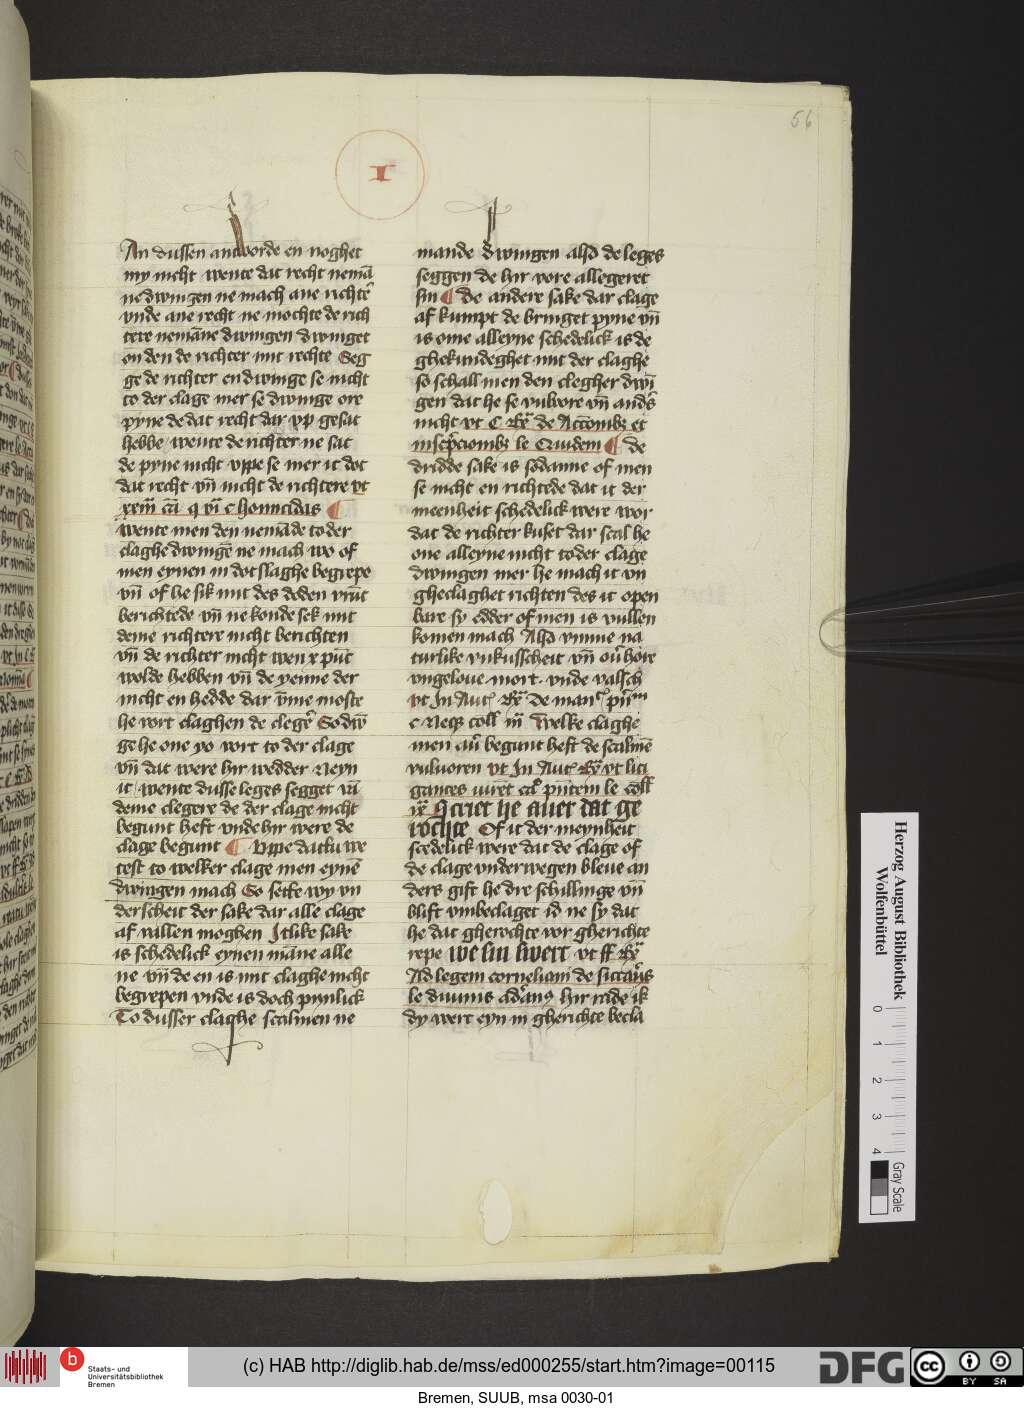 56
I
An dussen antworde en noghet
my nicht wente dat recht nemā
ne dwingen ne mach ane richtẽ
vnde ane recht ne mochte de rich
tere nemāne dwingen dwinget
on den de richter mit rechte Seg
ge de richter en dwinge se nicht
to der clage mer se dwinge ore
pyne de dat recht dar vp gesat
hebbe wente de richter ne sat
de pyne nicht vppe se mer it dot
dat recht vn̄ nicht de richtere vt
c homicidas ¶
wente men den nemāde to der
claghe dwingē ne mach wo of
men eynen in dotslaghe begrepe
vn̄ of he sik mit des doden vrūt
berichtede vn̄ ne konde sek mit
deme richtere nicht berichten
vn̄ de richter nicht wen x pūt
wolde hebben vn̄ de yenne der
nicht en hedde dar v̄me moste
he wert claghen de clegẽ So dw̄
ge he one yo wert to der clage
vn̄ dat were hir wedder Neyn
it wente dusse leges segget vā
deme clegere de der clage nicht
begunt heft vnde hir were de
clage begunt ¶ Vppe dat tu we
test to welker clage men eynē
dwingen mach So sette wy vn
derscheit der sake dar alle clage
af vallen moghen Itlike sake
is schedelick eynen māne alle
ne vn̄ de en is mit claghe nicht
begrepen vnde is doch pynlick
To dusser claghe scalmen ne
mande dwingen also de leges
seggen de hir vore allegeret
sin ¶ de andere sake dar clage
af kumpt de bringet pyne vn̄
is ome alleyne schedelick is de
ghekundeghet mit der claghe
so schall men den clegher dwī
gen dat he se vulvore vn̄ anders
nicht vt C
le Quidem ¶ de
dridde sake is sodanne of men
se nicht en richtede dat it der
meenheit schedelick were wor
dat de richter kuset dar scal he
one alleyne nicht to der clage
dwingen mer he mach it vn
gheclaghet richten des it open
bare sy edder of men is vullen
komen mach Also vmme na
turlike vnkusscheit vn̄ ouer hore
vngeloue mort vnde valsch
vt In Aut
Welke claghe
men au̓ begunt heft de scalmē
vulvoren vt In Aut vt liti
gantes
Scriet he auer dat ge
rochte Of it der meynheit
scedelick were dat de clage of
de clage vnderwegen bleue an
ders gift he dre schillinge vn̄
blift vmbeclaget id ne sy dat
he dat gherochte vor gherichte
repe we sin swert vt ff
Ad legem corneliam de siccarijs
le diuinis adrianꝰ hir mede ik
dy wert eyn in gherichte becla
Herzog August Bibliothek
Wolfenbüttel
0 1 2 3 4
Gray Scale
b Staats- und
Universitätsbibliothek
Bremen
(c) HAB http://diglib.hab.de/mss/ed000255/start.htm?image=00115
DFG
cc BY SA
Bremen, SUUB, msa 0030-01